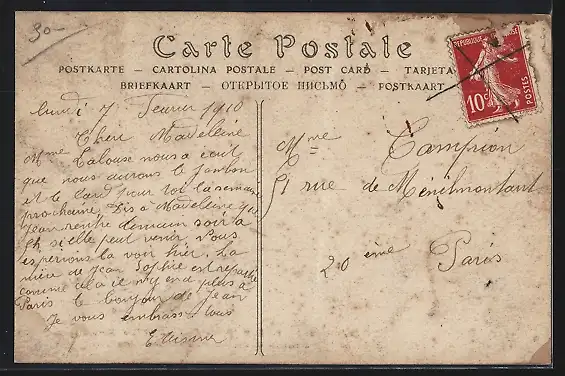 30-
Carte Postale
POSTKARTE — CARTOLINA POSTALE — POST CARD — TARJETA
BRIEFKAART — ОТКРЫТОЕ ПИСЬМО — POSTKAART
REPUBLIQUE
10c
POSTES
Lundi 7 Fevrier 1910
Chère Madeleine
Mme Lalouse nous a écrit
que nous aurons le jambon
et le lard pour toi la semaine
prochaine. Dis à Madeleine que
Jean rentre demain soir à
8h si elle peut venir. Nous
esperions la voir hier. La
mère de Jean Sophie est repartie
comme cela il n'y en a plus à
Paris le bonjour de Jean
Je vous embrasse tous
Mme Campion
rue de Ménilmontant
20 ème Paris